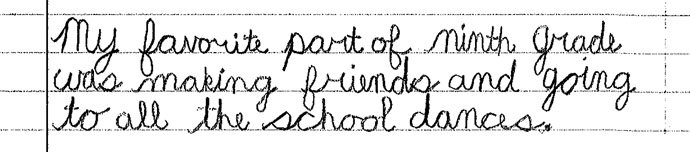 My favorite part of ninth grade
was making friends and going
to all the school dances.